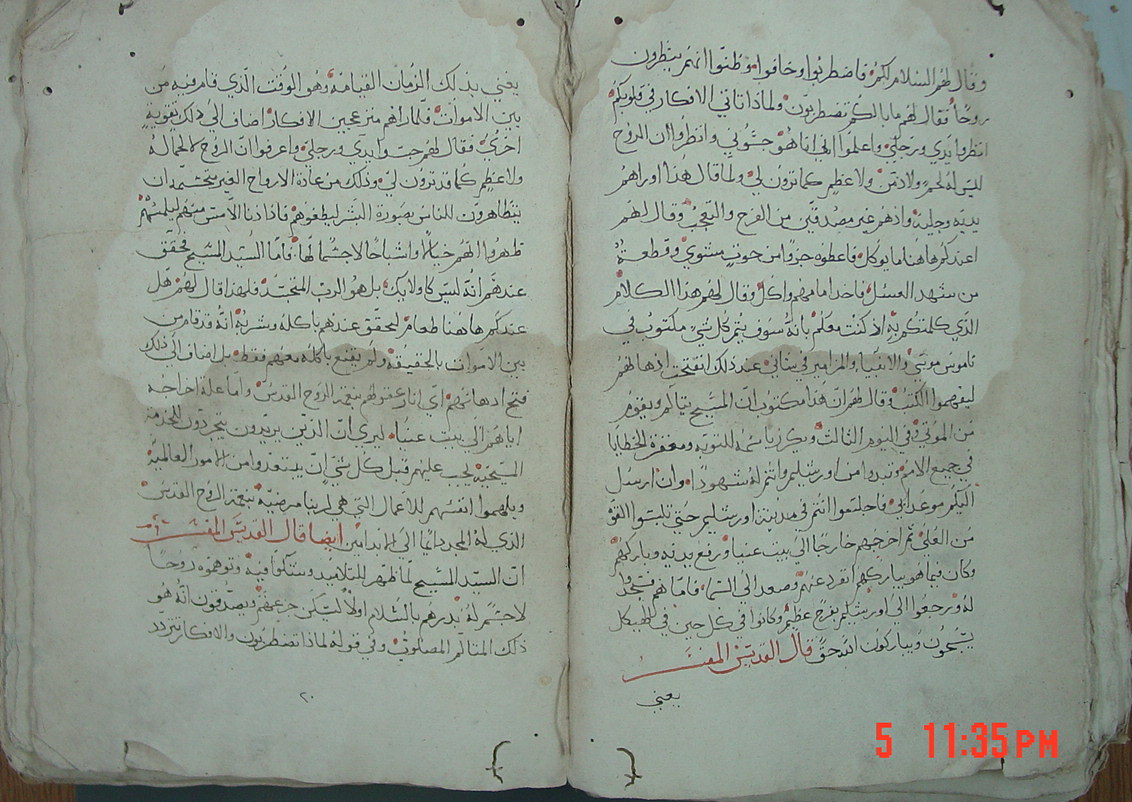 وقال لهم السلام لكم فاضطربوا وخافوا وظنوا انهم ينظرون
روحًا فقال لهم ما بالكم تضطربون ولماذا تاتي الافكار في قلوبكم
انظروا يدي ورجلي واعلموا اني انا هو جسّوني وانظروا ان الروح
ليس له لحم ولا دم ولا عظم كما ترون لي ولما قال هذا اوراهم
يديه ورجليه واذ هم غير مصدقين من الفرح والتعجب وقال لهم
اعندكم هاهنا ما يوكل فاعطوه جزوًا من حوت مشوي وقطعة
من شهد العسل فاخذ امامهم واكل وقال لهم هذا الكلام
الذي كلمتكم به اذ كنت معكم بانه سوف يتم كل شي مكتوب في
ناموس موسى والانبيا والمزامير من شاني عند ذلك انفتحت اذهانهم
ليفهموا الكتب وقال لهم ان هذا مكتوب ان المسيح يتالم ويقوم
من الموتى في اليوم الثالث ويكرز باسمه للتوبه ومغفرة الخطايا
في جميع الامم وتبدوا من اورشليم وانتم له شهودًا وان ارسل
اليكم موعد ابي فاجلسوا انتم في مدينة اورشليم حتى تلبسوا القوة
من العلى ثم اخرجهم خارجًا الى بيت عنيا ورفع يديه وباركهم
وكان فيما هو يباركهم انفرد عنهم وصعد الى السما فاما هم فسجدوا
له ورجعوا الى اورشليم بفرح عظيم وكانوا في كل حين في الهيكل
يسبحون ويباركون الله حق قال القديس المفسر
يعني
يعني بذلك الزمان القيامة وهو الوقت الذي قام فيه من
بين الاموات فلما راهم منزعجين الافكار اضاف الى ذلك تقوية
اخرى فقال لهم جسوا يدي ورجلي واعرفوا ان الروح لا لحمًا له
ولا عظم كما قد ترون لي وذلك من عادة الارواح الغير متجسمه ان
يتظاهرون للناس بصورة البشر ليطغوهم فاذا دنا الامس منهم ليلمسهم
ظهروا لهم خيالًا واشباحًا لا جسمًا لها فاما السيد المسيح فحقق
عندهم انه ليس كاولايك بل هو الرب المتجسد فلهذا قال لهم هل
عندكم هاهنا طعام ليحقق عندهم باكله وشربه انه قد قام من
بين الاموات بالحقيقه ولم يقنع باكله معهم فقط بل اضاف الى ذلك
فتح اذهانهم اي انار عقولهم بنعمة الروح القدس واما علة اخراجه
اياهم الى بيت عنيا ليري ان الذين يريدون يتجردون لخدمة
المسيحيه يجب عليهم قبل كل شي ان يبتعدوا من الامور العالميه
ويلهموا انفسهم للاعمال التي هي لربنا مرضيه بنعمة الروح القدس
الذي له المجد دايمًا الى الابد امين ايضا قال القديس المفسر
ان السيد المسيح لما ظهر للتلاميذ وشكوا فيه وتوهموه روحًا
لا جسم له بدرهم بالسلام اولًا ليسكن جزعهم ويصدقون انه هو
ذلك المتالم المصلوب وفي قوله لماذا تضطربون والافكار تتردد
٢٠
5 11:35 PM